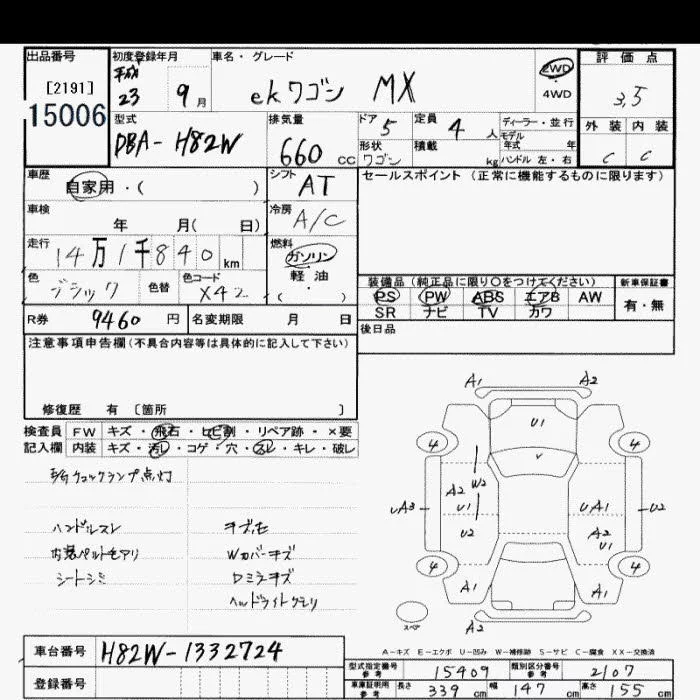 出品番号
[2191]
15006
初度登録年月
平成
23 9月
車名・グレード
ekワゴン MX
2WD
・
4WD
評価点
3.5
外装 内装
C C
型式
DBA-H82W
排気量
660 CC
ドア 5
形状
ワゴン
定員 4 人
積載 kg
ディーラー・並行
モデル
年式 年
ハンドル 左・右
車歴
自家用・( )
シフト
AT
セールスポイント (正常に機能するものに限ります)
車検
年 月( 日)
冷房
A/C
走行
14万1千840km
燃料
ガソリン
軽・油
・
( )
色
色替
色コード
X42
装備品 (純正品に限り○をつけてください)
PS PW ABS エアB AW
SR ナビ TV カワ
新車保証書
有・無
R券 9460 円
名変期限 月 日
後日品
注意事項申告欄(不具合内容等は具体的に記入して下さい)
修復歴 有 〔箇所 〕
検査員 FW キズ・飛石・ヒビ割・リペア跡・×要
記入欄 内装 キズ・汚レ・コゲ・穴・スレ・キレ・破レ
チェックランプ点灯
ハンドルスレ
内張ベルトモアリ
シートシミ
キズ
Wカバーキズ
Dミラキズ
ヘッドライトクモリ
A1 A2
U1
4 4
W2
A2
U1
U2
UA1
A2
U1
U2
4 4
A1 A1
スペア
A2
A-キズ E-エクボ U-凹み W-補修跡 S-サビ C-腐食 XX-交換済
車台番号 H82W-1332724
登録番号
型式指定番号
参考
15409
類別区分番号
参考
2107
車庫証明用
参考
長さ 339 cm 幅 147 cm 高さ 155 cm